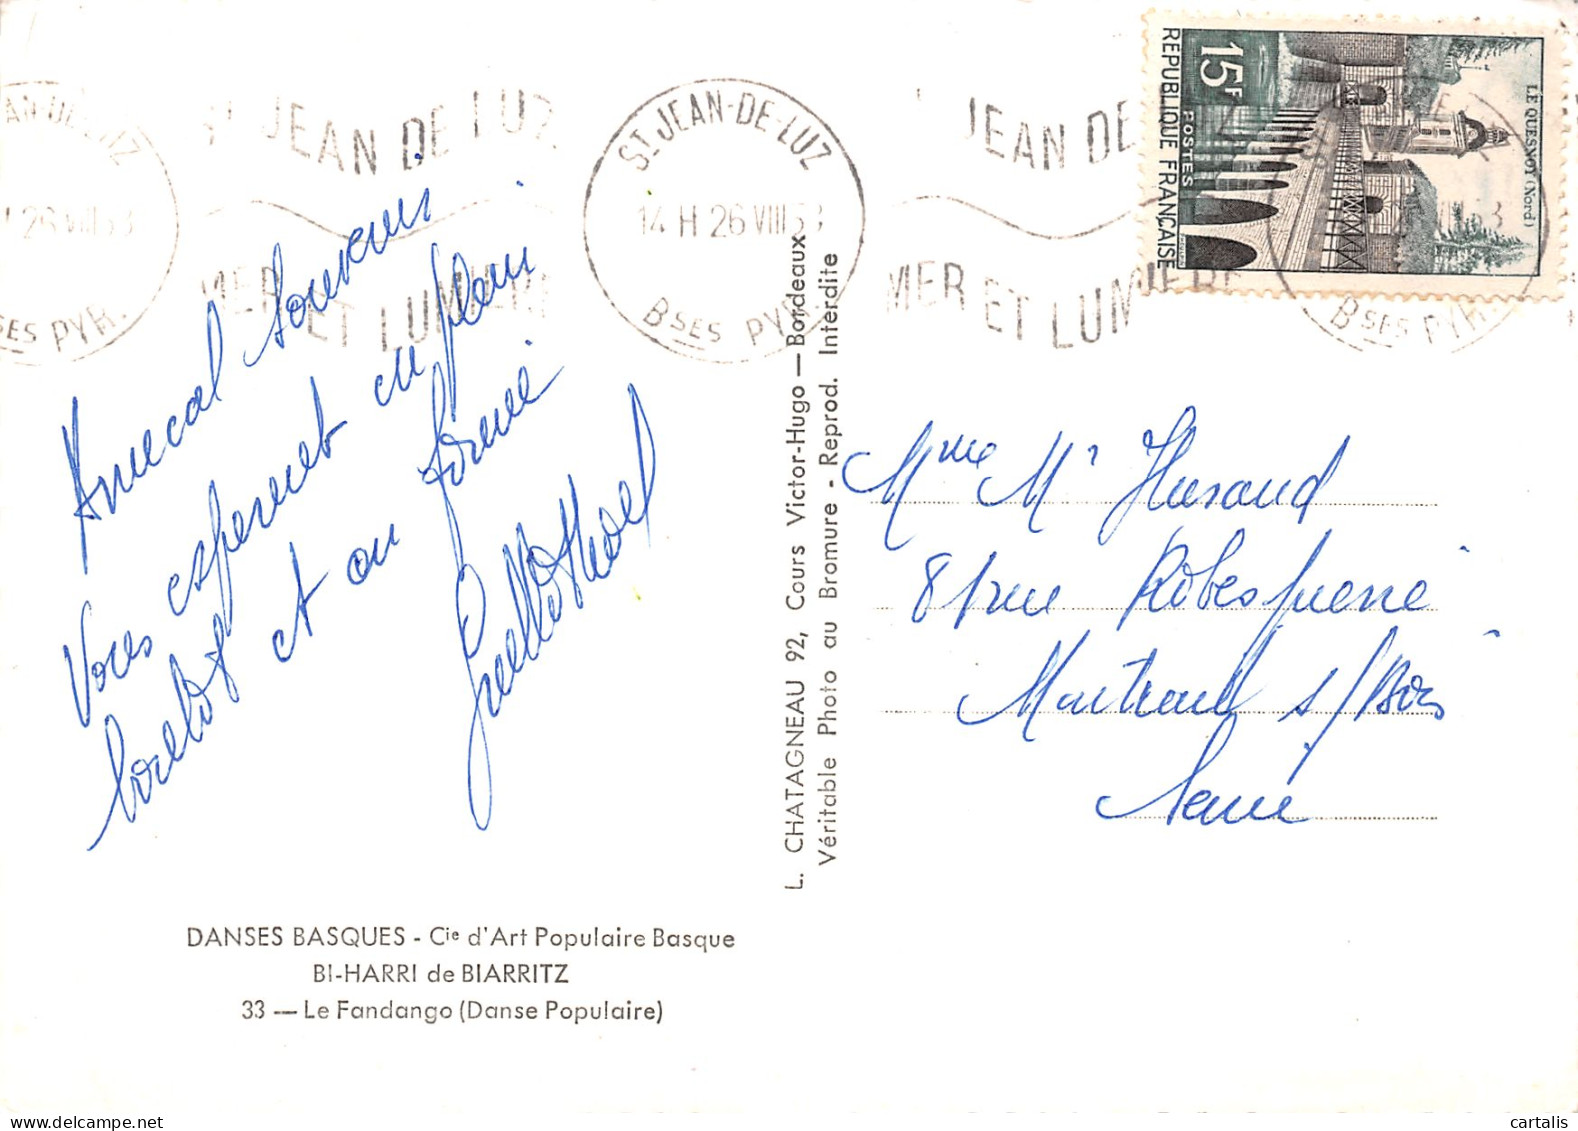 ST JEAN DE LUZ
MER ET LUMIÈRE
ST JEAN-DE-LUZ
14 H 26 VIII 58
BSES PYR.
JEAN DE
MER ET LUMIERE
REPUBLIQUE FRANÇAISE
15F
POSTES
LE QUESNOY (Nord)
BSES PYR.
Amical Souvenir
Vous espérant en plein
et en forme
L. CHATAGNEAU 92, Cours Victor-Hugo — Bordeaux
Véritable Photo au Bromure - Reprod. Interdite
Mme Mr
81 rue Robespierre
Montreuil s/Bois
Seine
DANSES BASQUES - Cie d'Art Populaire Basque
BI-HARRI de BIARRITZ
33 — Le Fandango (Danse Populaire)
cartalis